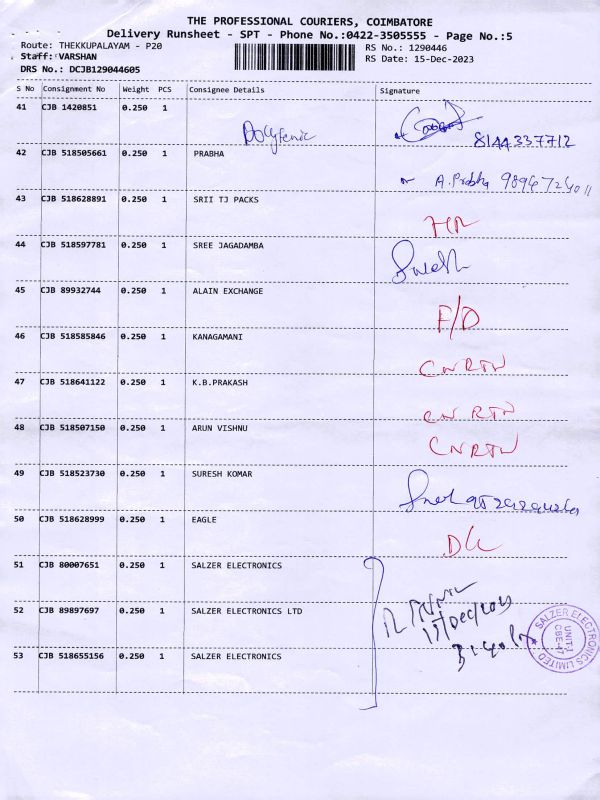 THE PROFESSIONAL COURIERS, COIMBATORE
Delivery Runsheet - SPT - Phone No.:0422-3505555 - Page No.:5
Route: THEKKUPALAYAM - P20
RS No.: 1290446
Staff: VARSHAN
RS Date: 15-Dec-2023
DRS No.: DCJB129044605
S No Consignment No Weight PCS Consignee Details Signature
41 CJB 1420851 0.250 1
8144337712
42 CJB 518505661 0.250 1 PRABHA
A.Prabha 9894724011
43 CJB 518628891 0.250 1 SRII TJ PACKS
44 CJB 518597781 0.250 1 SREE JAGADAMBA
45 CJB 89932744 0.250 1 ALAIN EXCHANGE
F/D
46 CJB 518585846 0.250 1 KANAGAMANI
CNRTN
47 CJB 518641122 0.250 1 K.B.PRAKASH
CNRTN
48 CJB 518507150 0.250 1 ARUN VISHNU
CNRTN
49 CJB 518523730 0.250 1 SURESH KOMAR
50 CJB 518628999 0.250 1 EAGLE
DL
51 CJB 80007651 0.250 1 SALZER ELECTRONICS
52 CJB 89897697 0.250 1 SALZER ELECTRONICS LTD
15/Dec/2023
SALZER ELECTRONICS LIMITED
UNIT-I
CBE-47
53 CJB 518655156 0.250 1 SALZER ELECTRONICS